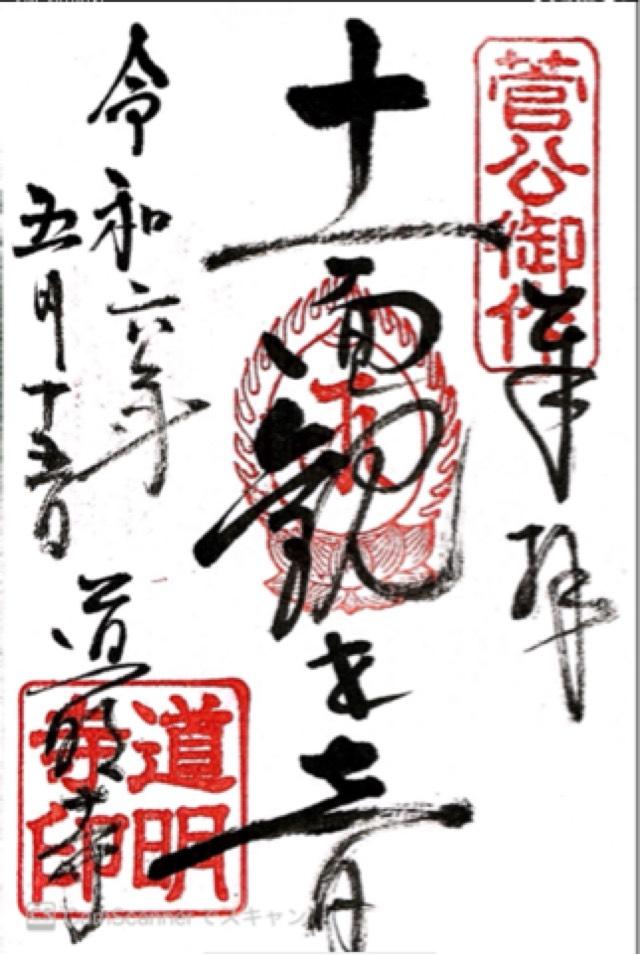 菅公御作
奉拝
十一面観世音
令和六年
五月十五日
道明寺
道明寺印
CamScannerでスキャン